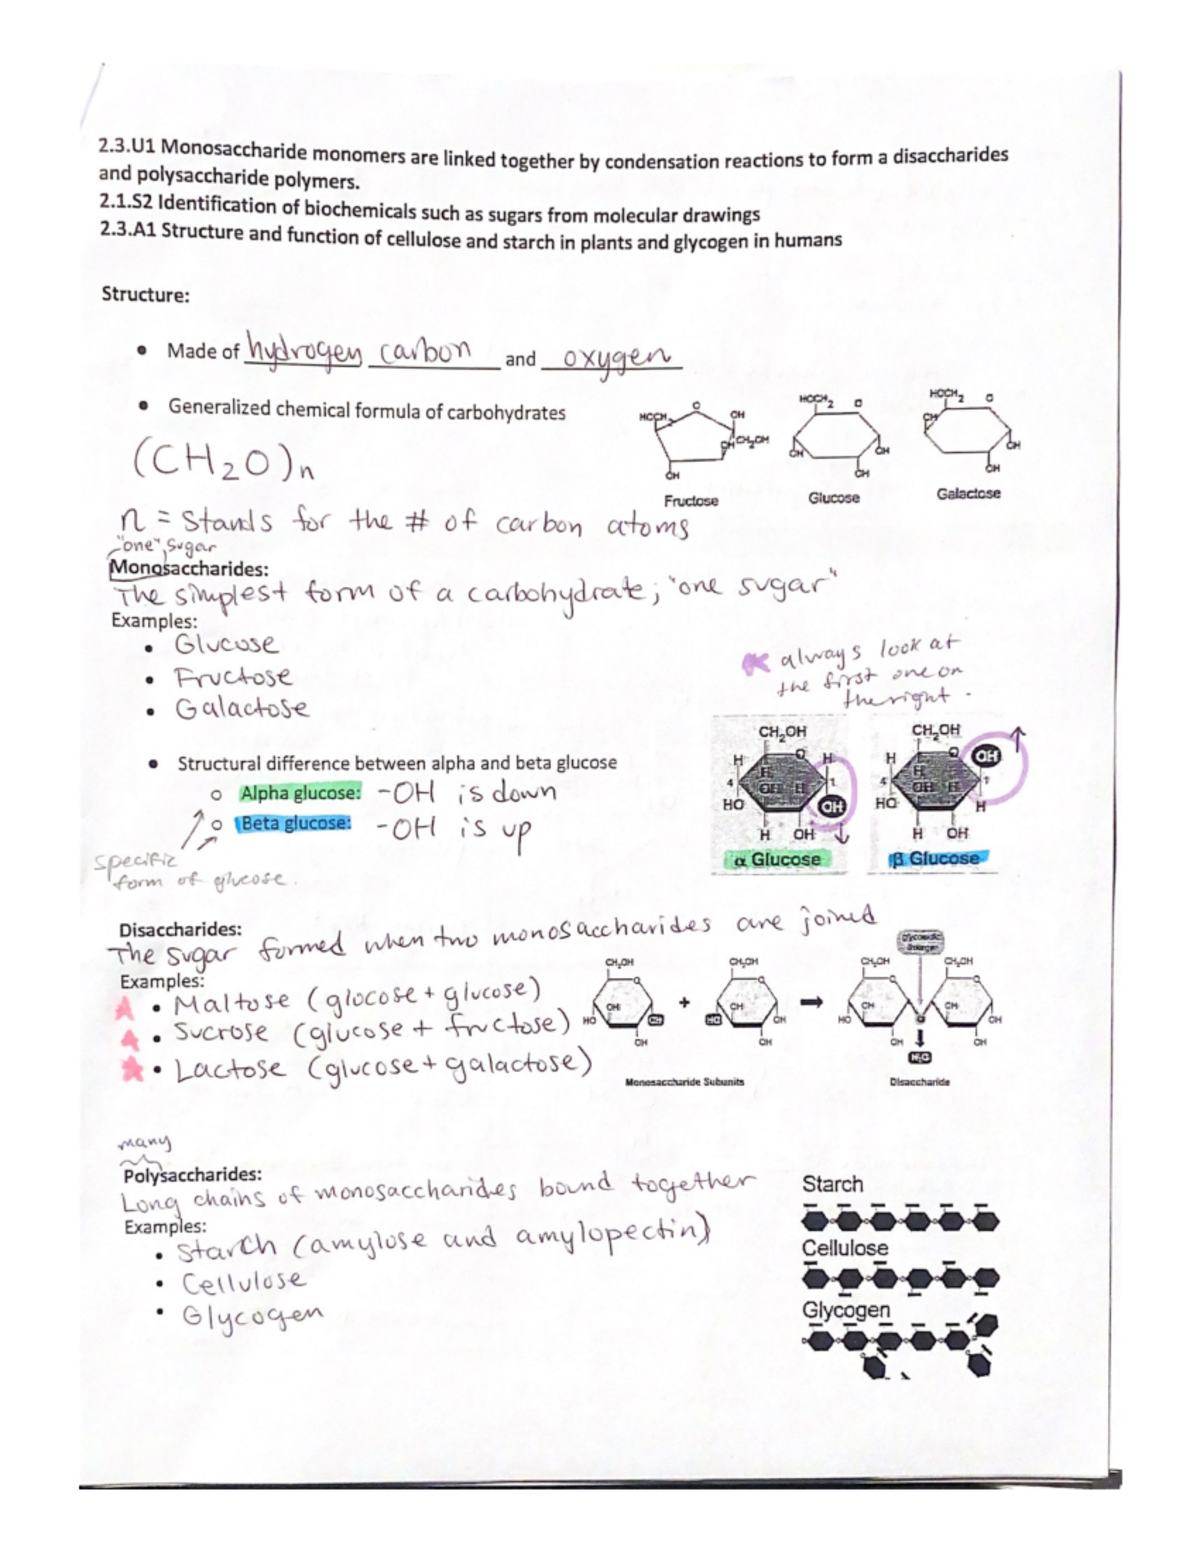 2.3.U1 Monosaccharide monomers are linked together by condensation reactions to form a disaccharides
and polysaccharide polymers.
2.1.S2 Identification of biochemicals such as sugars from molecular drawings
2.3.A1 Structure and function of cellulose and starch in plants and glycogen in humans
Structure:
• Made of hydrogen carbon and oxygen
• Generalized chemical formula of carbohydrates
(CH₂O)n
HOCH₂ O OH CH₂OH OH OH
HOCH₂ O OH OH OH
HOCH₂ O OH OH OH
Fructose Glucose Galactose
n = stands for the # of carbon atoms
"one", sugar
Monosaccharides:
The simplest form of a carbohydrate; "one sugar"
Examples:
• Glucose
• Fructose
• Galactose
always look at
the first one on
the right.
• Structural difference between alpha and beta glucose
o Alpha glucose: -OH is down
o Beta glucose: -OH is up
specific
form of glucose.
CH₂OH O H H H 4 OH H 1 HO OH H OH
α Glucose
CH₂OH O OH H H 4 OH H 1 HO H H OH
β Glucose
Disaccharides:
The sugar formed when two monosaccharides are joined
Examples:
• Maltose (glocose + glucose)
• Sucrose (glucose + fructose)
• Lactose (glucose + galactose)
CH₂OH O OH HO OH OH + CH₂OH O OH HO OH OH
CH₂OH O OH HO OH O CH₂OH O OH OH OH
H₂O
Monosaccharide Subunits Disaccharide
many
Polysaccharides:
Long chains of monosaccharides bound together
Examples:
• Starch (amylose and amylopectin)
• Cellulose
• Glycogen
Starch
Cellulose
Glycogen